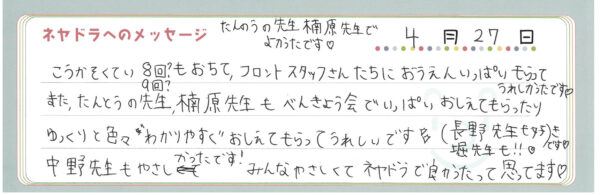 ネヤドラへのメッセージ
たんのうの先生楠原先生で
よかったです♡
4月27日
こうかそくてい8回?もおちて,フロントスタッフさんたちにおうえんいっぱいもらって
9回?
うれしかったです♡
また,たんとうの先生,楠原先生もべんきょう会でいっぱいおしえてもらったり
ゆっくりと色々"わかりやすく"おしえてもらってうれしいです (長野先生も好き
です♡
堀先生も!!
中野先生もやさしかったです!みんなやさしくてネヤドラで良かったって思ってます♡